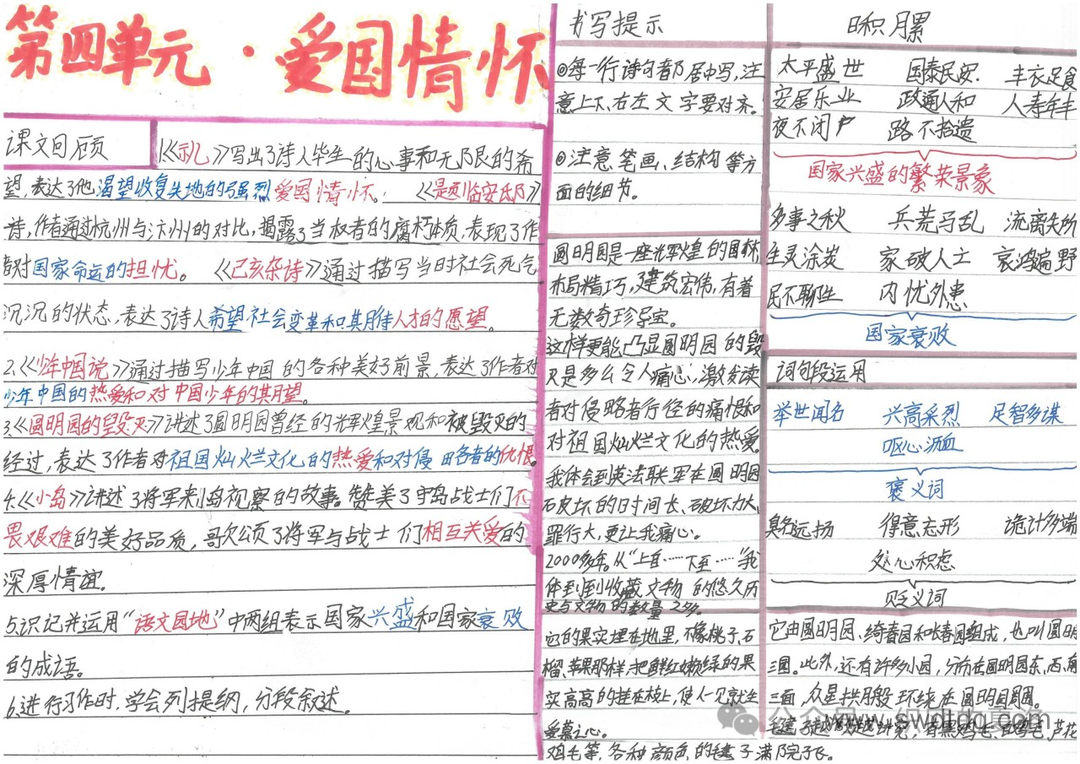 第四单元·爱国情怀
课文回顾
1.《示儿》写出了诗人毕生的心事和无限的希
望,表达了他渴望收复失地的强烈爱国情怀。《题临安邸》
诗,作者通过杭州与汴州的对比,揭露了当权者的腐朽本质,表现了作
者对国家命运的担忧。《己亥杂诗》通过描写当时社会死气
沉沉的状态,表达了诗人希望社会变革和期待人才的愿望。
2.《少年中国说》通过描写少年中国的各种美好前景,表达了作者对
少年中国的热爱和对中国少年的期望。
3.《圆明园的毁灭》讲述了圆明园曾经的辉煌景观和被毁灭的
经过,表达了作者对祖国灿烂文化的热爱和对侵略者的仇恨。
4.《小岛》讲述了将军来小岛视察的故事。赞美了守岛战士们不
畏艰难的美好品质,歌颂了将军与战士们相互关爱的
深厚情谊。
5.识记并运用“语文园地”中两组表示国家兴盛和国家衰败
的成语。
6.进行习作时,学会列提纲,分段叙述。
书写提示
每一行诗句都居中写,注
意上下、右左文字要对齐。
注意笔画、结构等方
面的细节。
圆明园是一座光辉煌的园林
布局精巧,建筑宏伟,有着
无数奇珍异宝。
这样更能凸显圆明园的毁
灭是多么令人痛心,激发读
者对侵略者行径的痛恨和
对祖国灿烂文化的热爱
我体会到英法联军在圆明园
破坏的时间长、破坏力大、
罪行大,更让我痛心。
2000多年。从“上自……下至……”我
体到到收藏文物的悠久历
史与文物的数量之多。
它的果实埋在地里,不像桃子、石
榴、苹果那样,把鲜红嫩绿的果
实高高的挂在枝上,使人一见就生
爱慕之心。
鸡毛等,各种颜色的毽子满院子飞。
日积月累
太平盛世 国泰民安 丰衣足食
安居乐业 政通人和 人寿年丰
夜不闭户 路不拾遗
国家兴盛的繁荣景象
多事之秋 兵荒马乱 流离失所
生灵涂炭 家破人亡 哀鸿遍野
民不聊生 内忧外患
国家衰败
词句段运用
举世闻名 兴高采烈 足智多谋
呕心沥血
褒义词
臭名远扬 得意忘形 诡计多端
处心积虑
贬义词
它由圆明园、绮春园和长春园组成,也叫圆明
三园。此外,还有许多小园,分布在圆明园东、西、南
三面,众星拱月般环绕在圆明园周围。
公众号 www.swdtdq.com